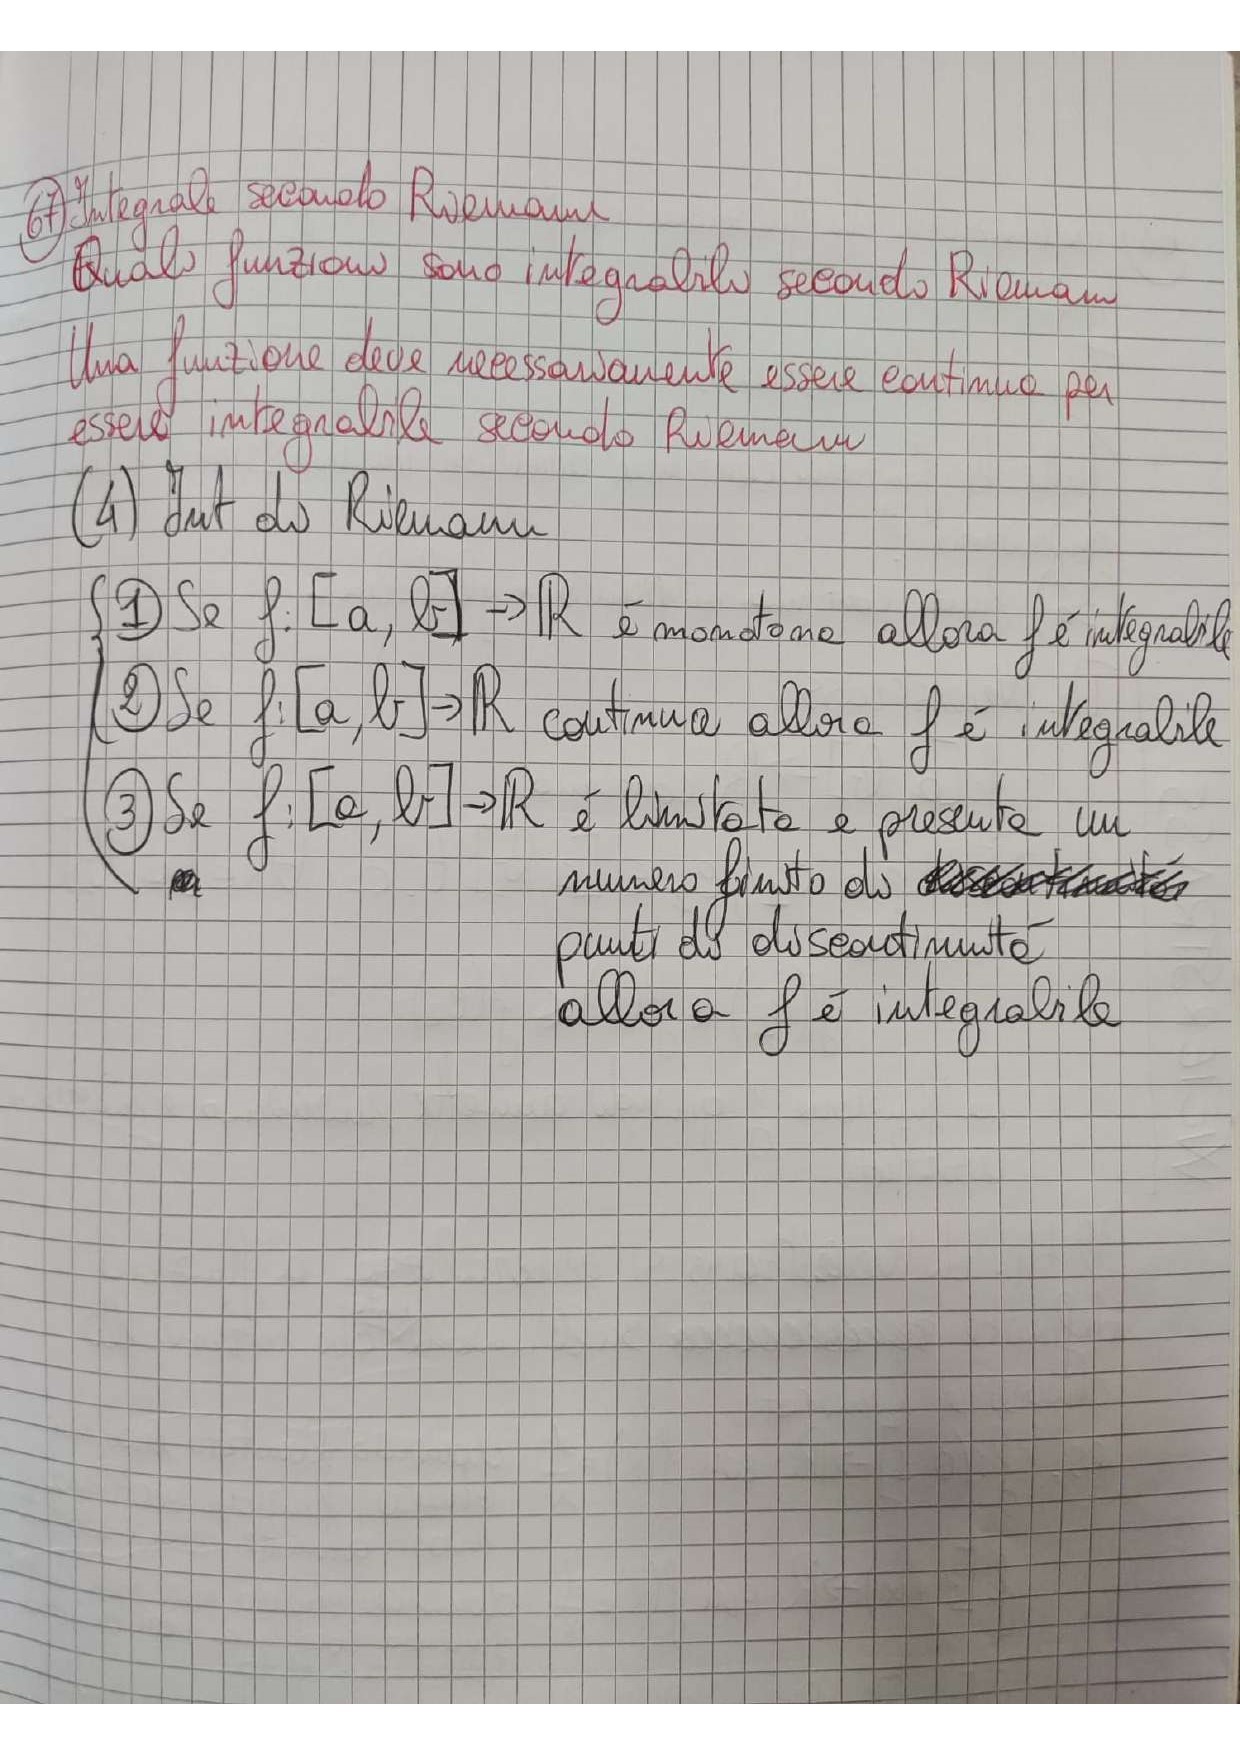 67) Integrale secondo Riemann
Quali funzioni sono integrabili secondo Riemann
Una funzione deve necessariamente essere continua per
essere integrabile secondo Riemann
(4) Int di Riemann
① Se f: [a, b] → ℝ é monotona allora f é integrabile
② Se f: [a, b] → ℝ continua allora f é integrabile
③ Se f: [a, b] → ℝ é limitata e presenta un
numero finito di
punti di discontinuitá
allora f é integrabile